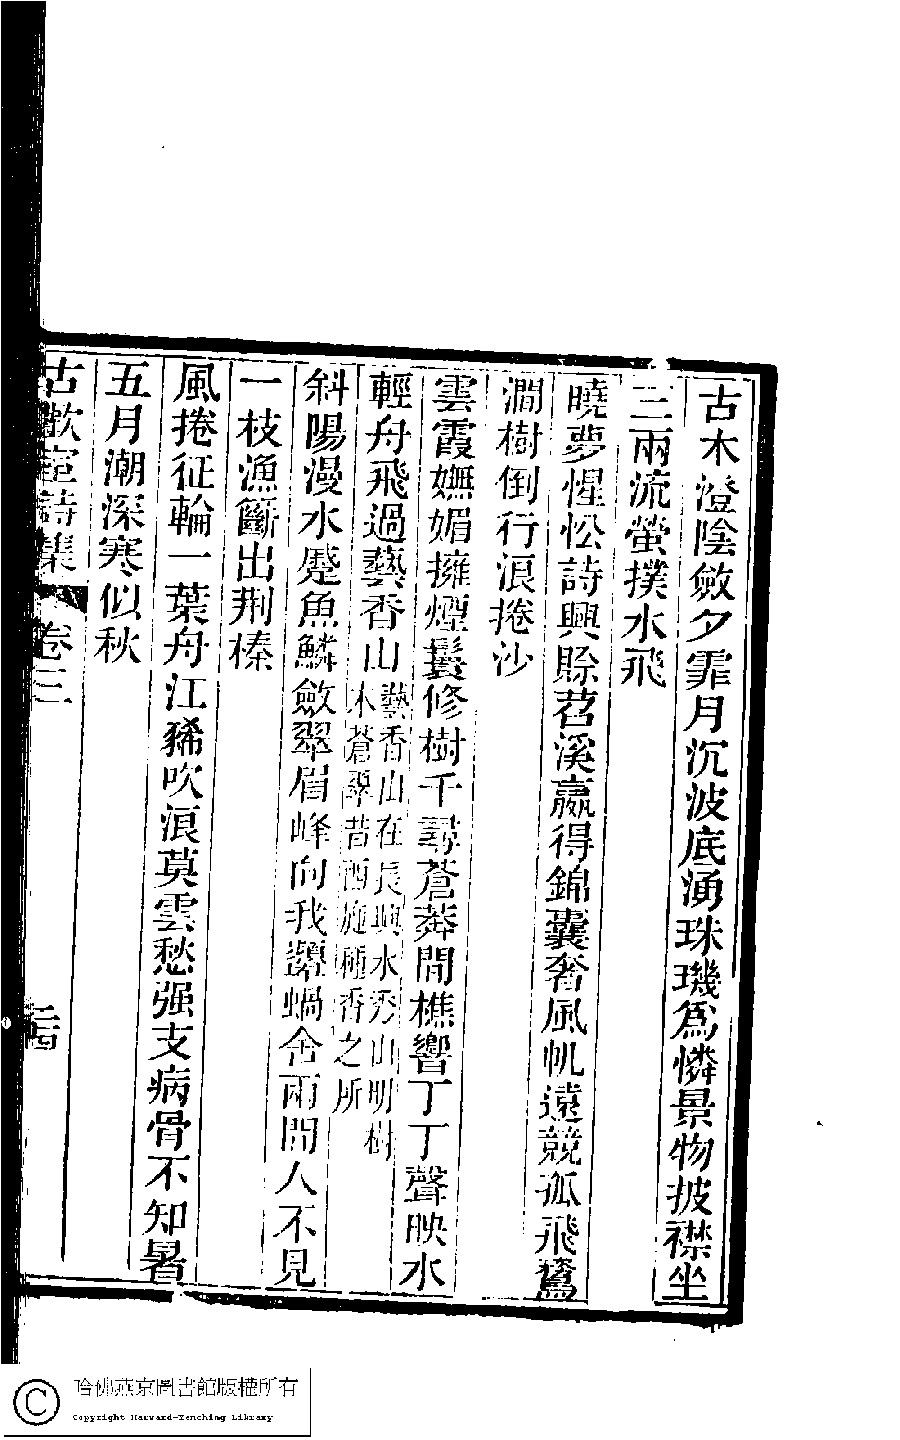 古木澄陰斂夕霏月沉波底湧珠璣為憐景物披襟坐
三兩流螢撲水飛
曉夢惺忪詩興賒苕溪贏得錦囊奢風帆遠競孤飛鶩
澗樹倒行浪捲沙
雲霞嫵媚擁煙鬟修樹千尋蒼莽間樵響丁丁聲映水
輕舟飛過藝香山藝香山在長興水秀山明樹
木蒼翠昔西施種香之所
斜陽漫水蹙魚鱗斂翠眉峰向我顰蝸舍兩間人不見
一枝漁籪出荆榛
風捲征輪一葉舟江豨吹浪莫雲愁强支病骨不知暑
五月潮深寒似秋
古歡室詩集 卷三 二四
哈佛燕京圖書館版權所有
Copyright Harvard-Yenching Library